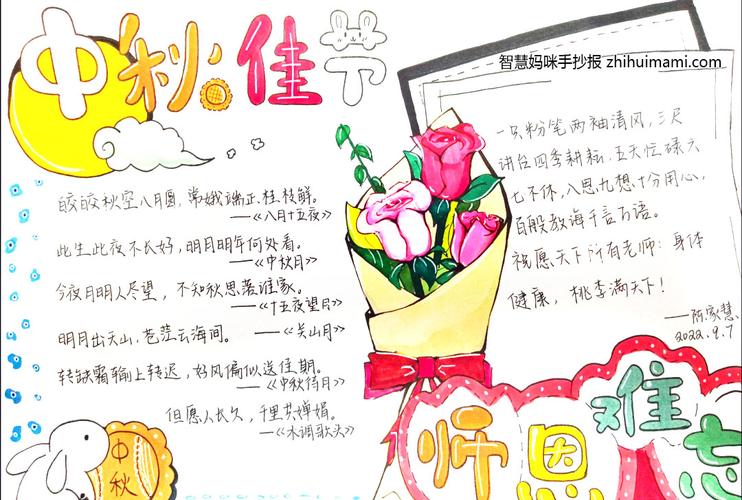 中秋佳节
智慧妈咪手抄报 zhihuimami.com
皎皎秋空八月圆,常娥端正桂枝鲜。
——《八月十五夜》
此生此夜不长好,明月明年何处看。
——《中秋月》
今夜月明人尽望,不知秋思落谁家。
——《十五夜望月》
明月出天山,苍茫云海间。
——《关山月》
转缺霜输上转迟,好风偏似送佳期。
——《中秋待月》
但愿人长久,千里共婵娟。
——《水调歌头》
中秋
一只粉笔两袖清风,三尺
讲台四季耕耘,五天忙碌六
七不休,八思九想十分用心,
百般教诲千言万语。
祝愿天下所有老师:身体
健康,桃李满天下!
——阿家慧
2022.9.7
师恩难忘